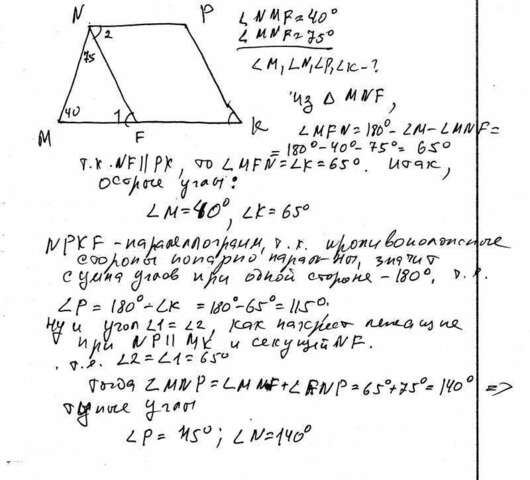 N P
2
75
40 1
M F K
∠NMF=40°
∠MNF=75°
∠M, ∠N, ∠P, ∠K-?
из ∆ MNF,
∠MFN=180°-∠M-∠MNF=
=180°-40°-75°= 65°
т.к. NF||PK, то ∠MFN=∠K=65°. итак,
острые углы:
∠M=40°, ∠K=65°
NPKF-параллелограмм, т.к. противоположные
стороны попарно парал-ны, значит
сумма углов при одной стороне-180°, т.е.
∠P=180°-∠K =180°-65°=115°.
ну и угол ∠1=∠2, как накрест лежащие
при NP||MK и секущей NF.
т.е. ∠2=∠1=65°
тогда ∠MNP=∠MNF+∠FNP=65°+75°=140° =>
тупые углы
∠P=115°; ∠N=140°